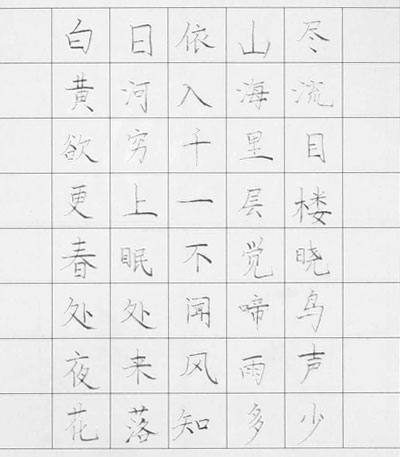 白日依山尽
黄河入海流
欲穷千里目
更上一层楼
春眠不觉晓
处处闻啼鸟
夜来风雨声
花落知多少